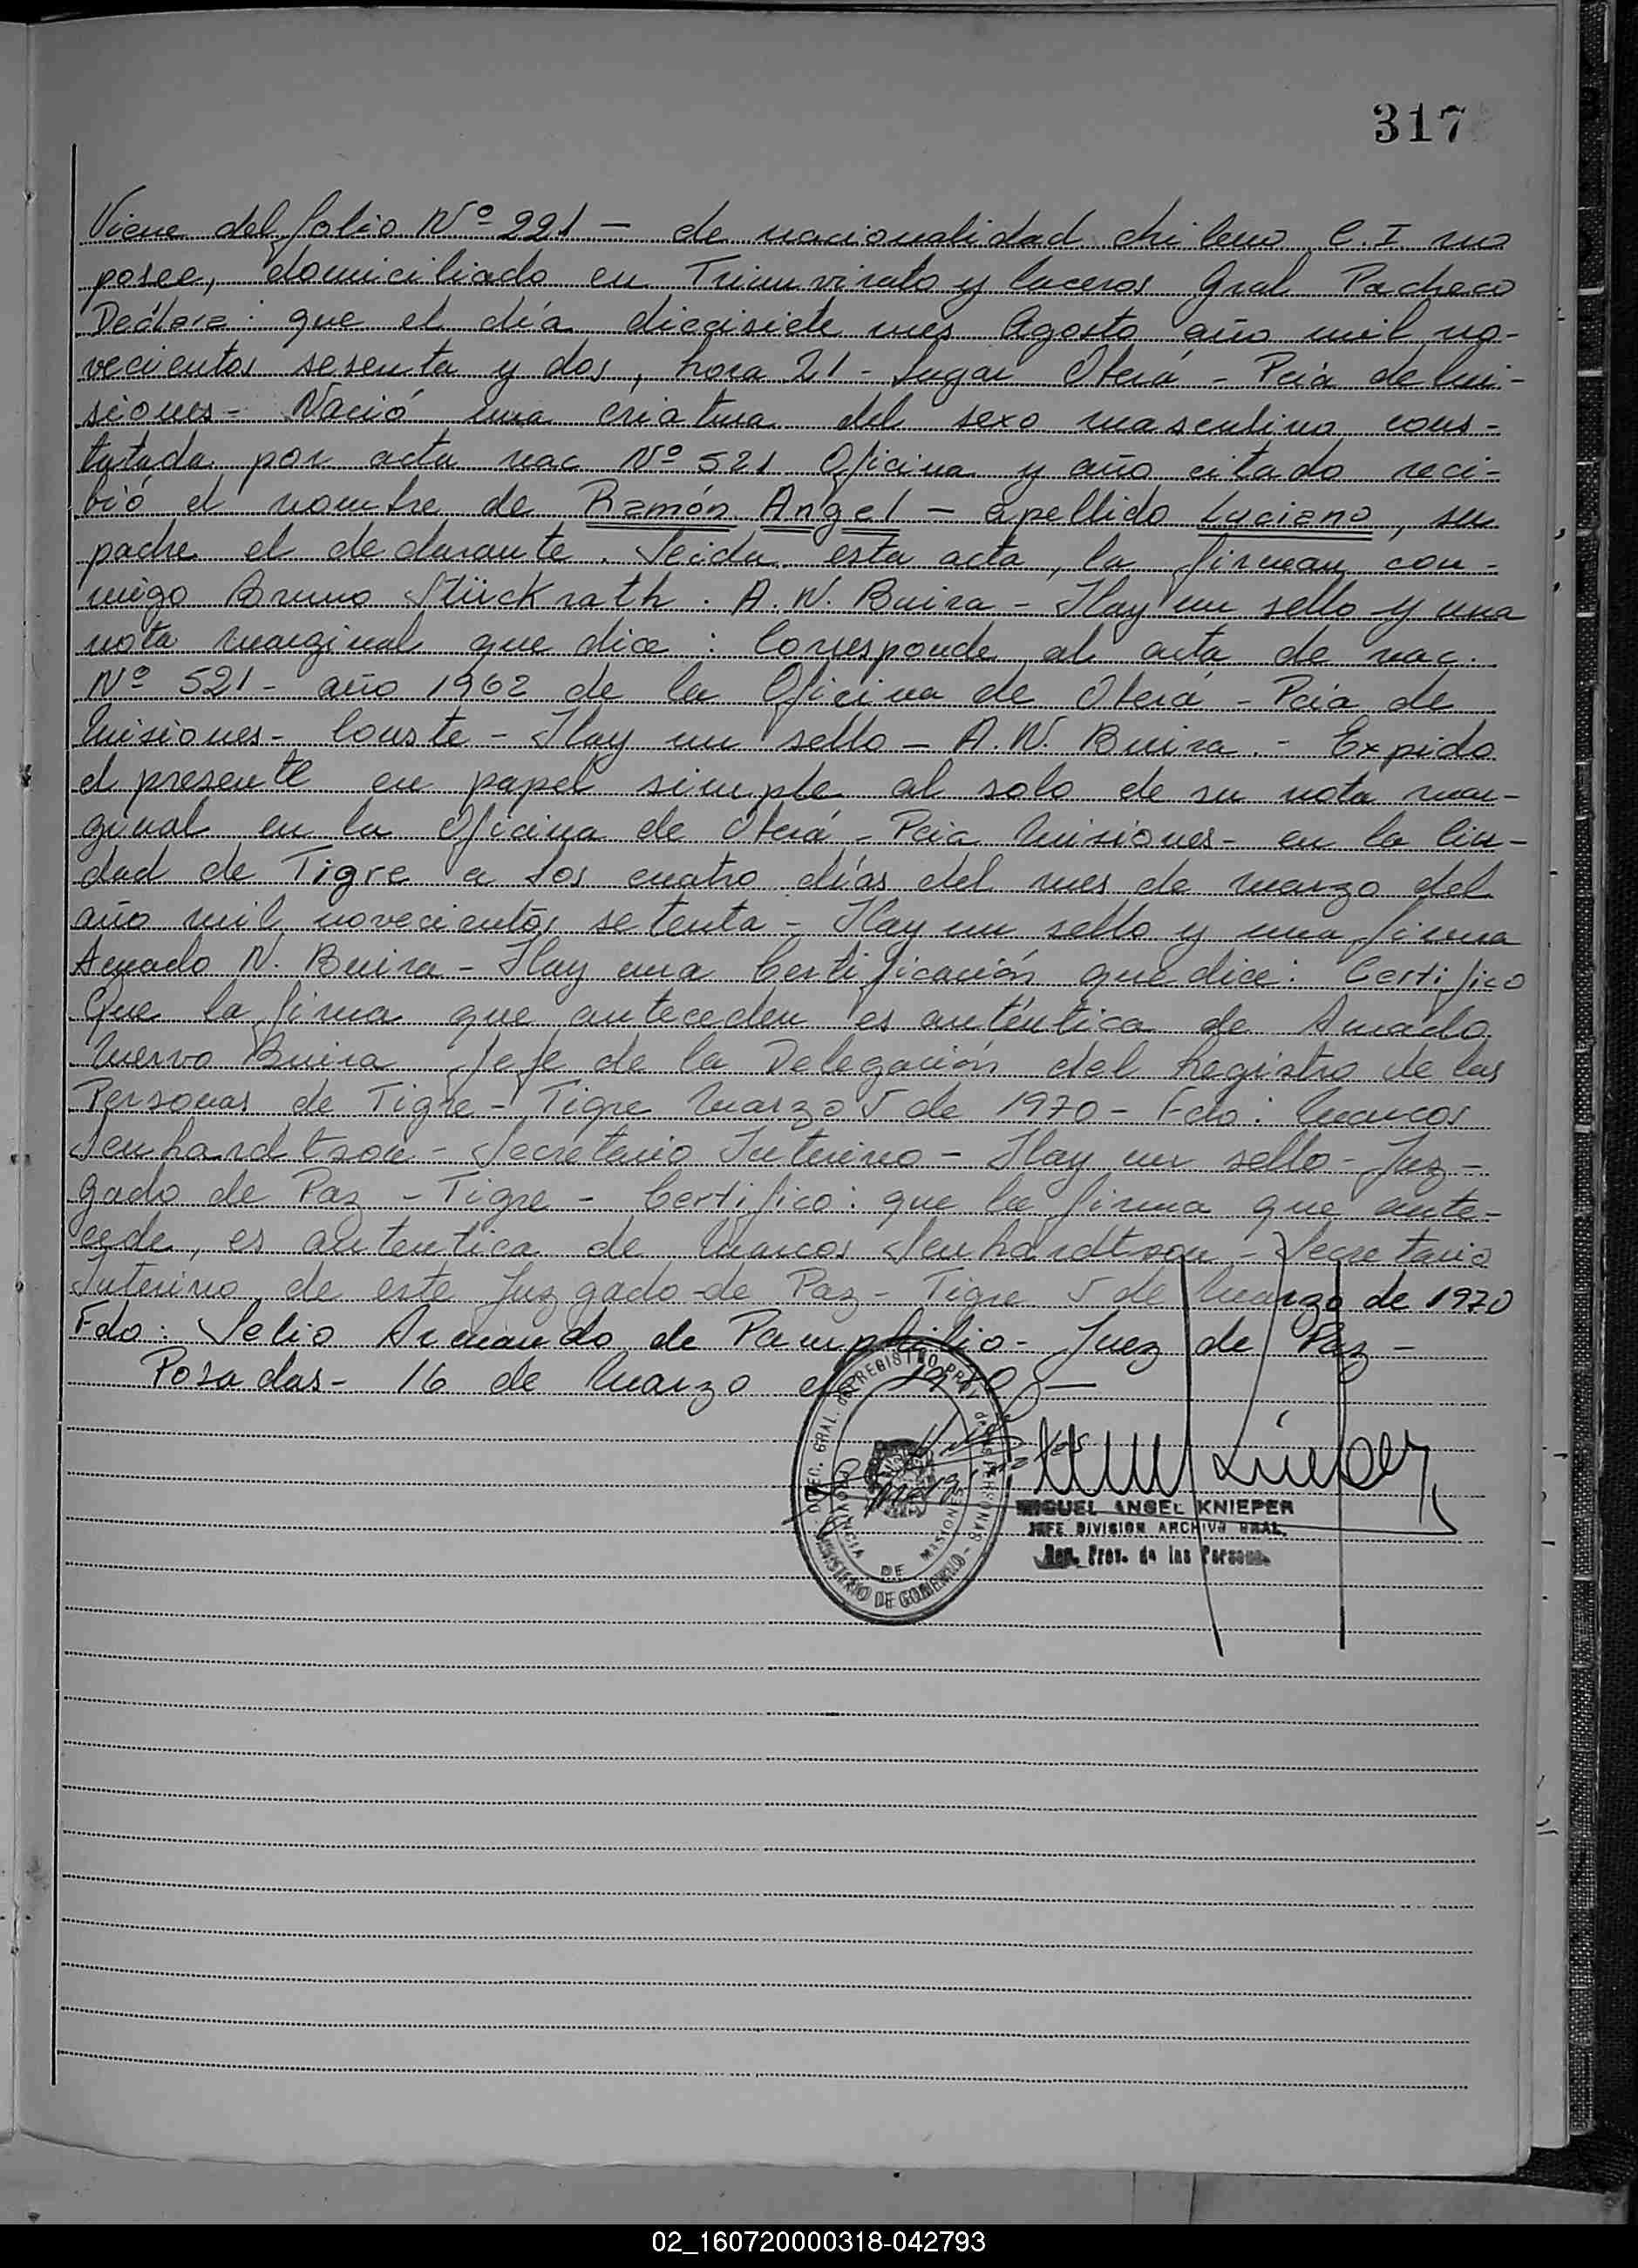 317
Viene del folio Nº 221 – de nacionalidad chileno C.I no
posee, domiciliado en Triunvirato y Luceros Gral Pacheco
Declara: que el día diecisiete mes Agosto año mil no-
vecientos sesenta y dos, hora 21 - Lugar Oberá - Pcia de Mi-
siones - Nació una criatura del sexo masculino cons-
tatada por acta nac Nº 521 Oficina y año citado reci-
bió el nombre de Ramón Angel – apellido Luciano, su
padre el declarante. Leida esta acta, la firman con-
migo Bruno Stückrath. A. N. Buira - Hay un sello y una
nota marginal que dice: Corresponde al acta de nac.
Nº 521 - año 1962 de la Oficina de Oberá - Pcia de
Misiones - Conste - Hay un sello - A. N. Buira. - Expido
el presente en papel simple al solo de su nota mar-
ginal en la Oficina de Oberá - Pcia Misiones - en la Ciu-
dad de Tigre a los cuatro días del mes de marzo del
año mil novecientos setenta - Hay un sello y una firma
Amado N. Buira - Hay una Certificación que dice: Certifico
Que la firma que anteceden es auténtica de Amado
Nervo Buira Jefe de la Delegación del Registro de las
Personas de Tigre - Tigre Marzo 5 de 1970 - Fdo: Marcos
- Secretario Interino - Hay un sello - Juz-
gado de Paz - Tigre - Certifico: que la firma que ante-
cede, es autentica de Marcos - Secretario
Interino de este Juzgado de Paz - Tigre 5 de Marzo de 1970
Fdo: Armando de Pamphilio - Juez de Paz -
Posadas - 16 de Marzo de 1970 -
DIREC. GRAL. del REGISTRO PROV. de las PERSONAS
PROVINCIA DE MISIONES
MINISTERIO DE GOBIERNO
MIGUEL ANGEL KNIEPER
JEFE DIVISION ARCHIVO GRAL.
Reg. Prov. de las Personas
02_160720000318-042793